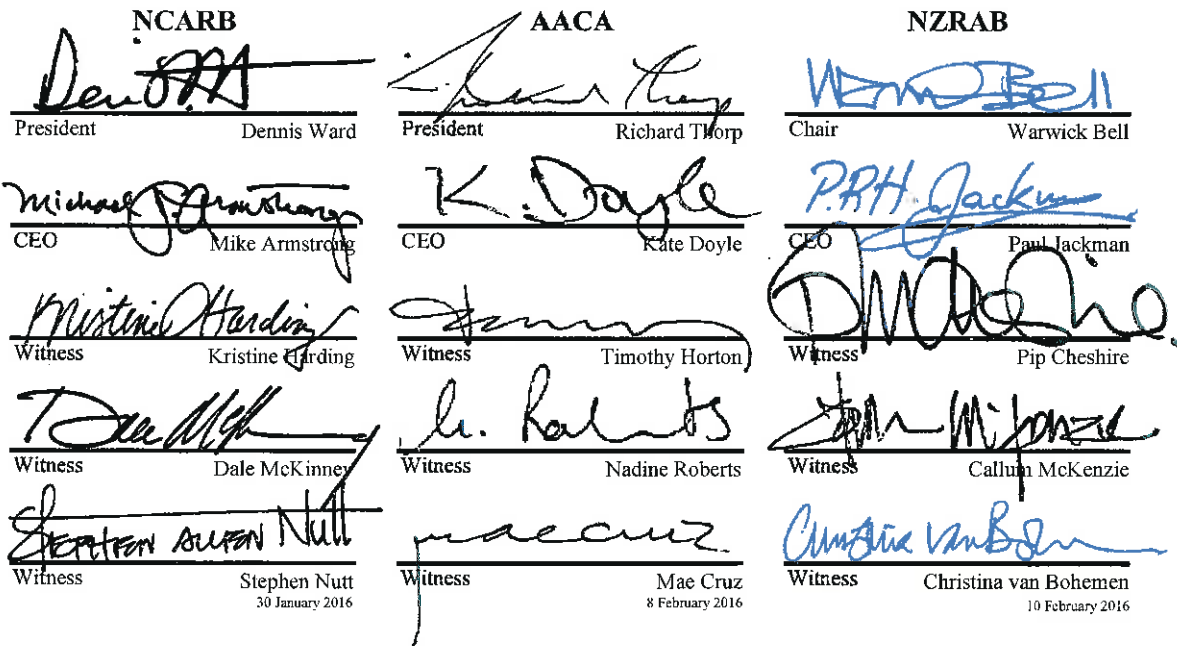 NCARB
President Dennis Ward
Michael J. Armstrong
CEO Mike Armstrong
Kristine Harding
Witness Kristine Harding
Witness Dale McKinney
STEPHEN ALLEN Nutt
Witness Stephen Nutt
30 January 2016
AACA
President Richard Thorp
K. Doyle
CEO Kate Doyle
Witness Timothy Horton
Roberts
Witness Nadine Roberts
mae cruz
Witness Mae Cruz
8 February 2016
NZRAB
Bell
Chair Warwick Bell
P.R.H. Jackman
CEO Paul Jackman
Witness Pip Cheshire
Witness Callum McKenzie
Witness Christina van Bohemen
10 February 2016